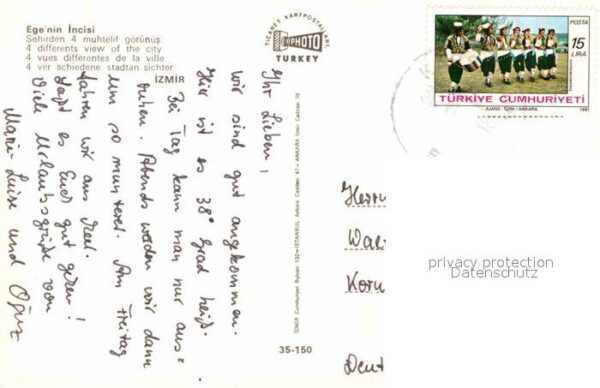 Ege'nin İncisi
Şehirden 4 muhtelif görünüş
4 differents view of the city
4 vues differentes de la ville
4 ver schiedene stadtan sichter
İZMİR
TİCARET KARTPOSTALLARI
PHOTO
TURKEY
POSTA
15
LİRA
TÜRKİYE CUMHURİYETİ
AJANS - TÜRK / ANKARA
1981
Ihr Lieben,
wir sind gut angekommen.
Hier ist es 38° Grad heiß.
Bei Tag kann man nur aus=
ruhen. Abends werden wir dann
um so munterer. Am Freitag
fahren wir ans Meer.
Laßt es Euch gut gehen!
Viele Urlaubsgrüße von
Marie-Luise und Oğuz
İZMİR Cumhuriyet Bulvarı 132 - İSTANBUL Ankara Caddesi 47 - ANKARA İzmir Caddesi 28
35-150
Herrn
privacy protection
Datenschutz